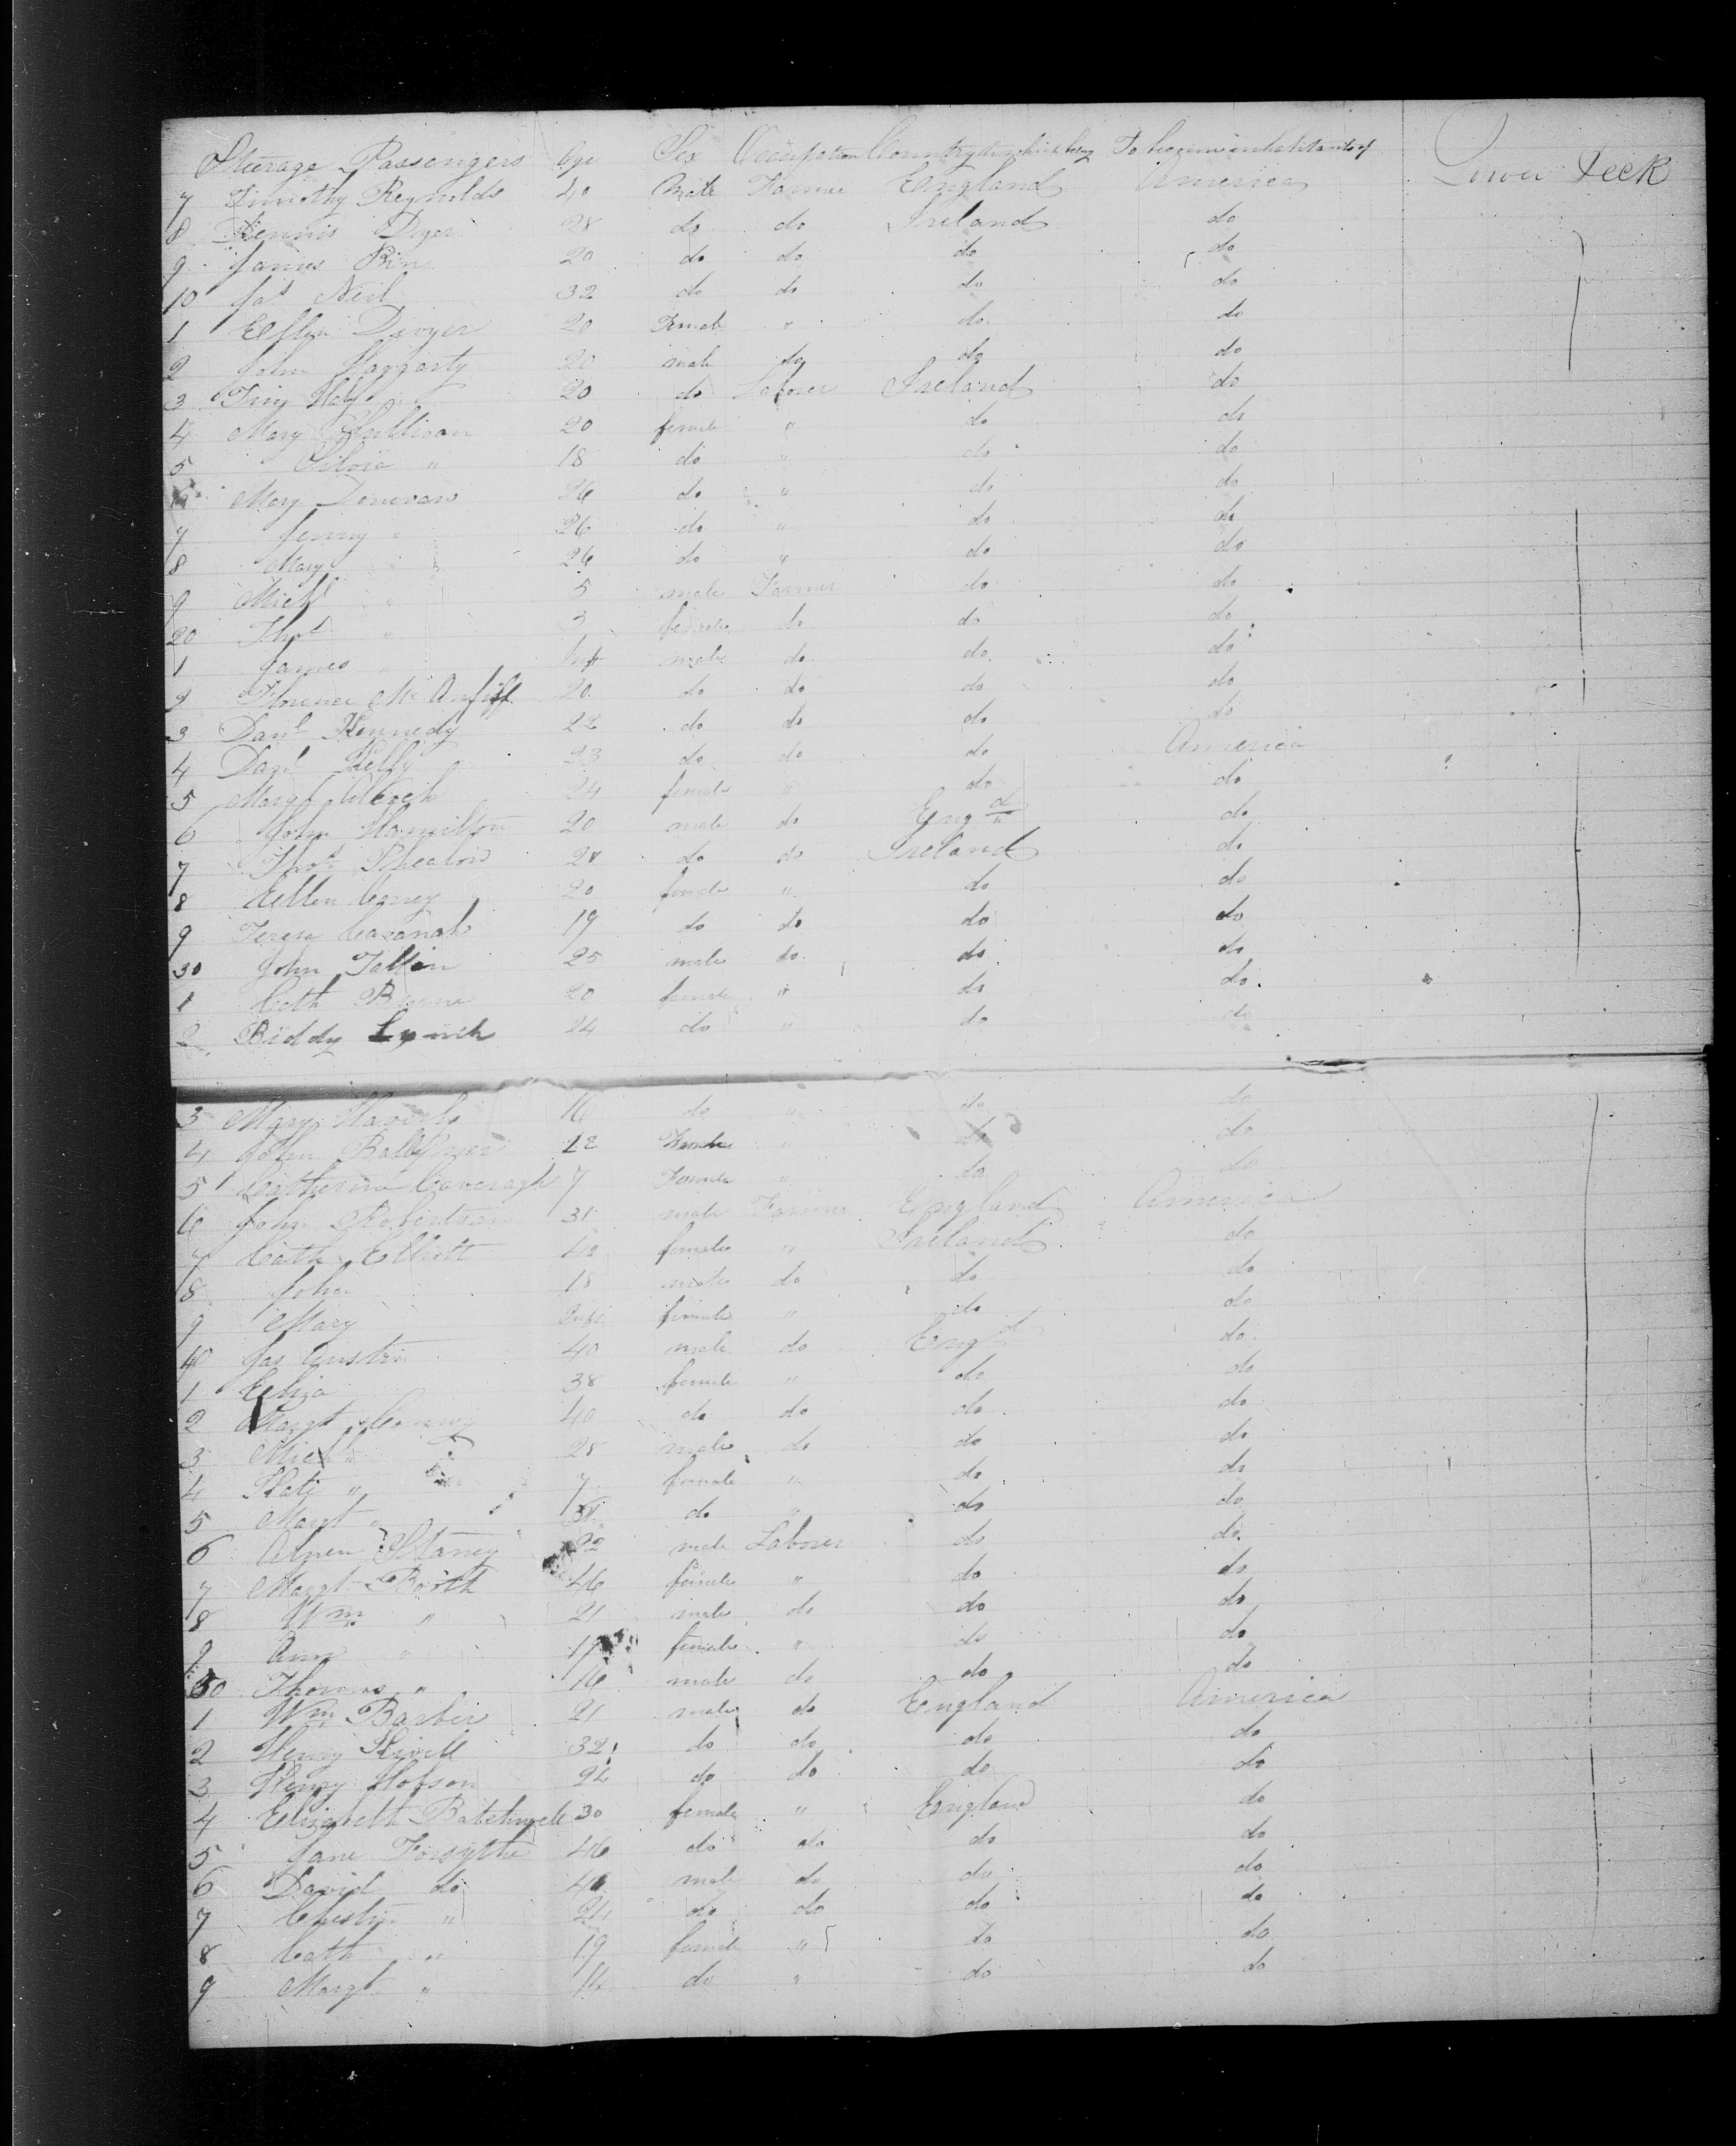 Steerage Passengers Age Sex Occupation Country to which belong To become inhabitants of Lower Deck
7 Timothy Reynolds 40 Male Farmer England America
8 Dennis Dwyer 28 do do Ireland do
9 James 20 do do do do
10 Jas Neil 32 do do do do
1 Ellen Dwyer 20 Female " do do
2 John Haggarty 20 male do do do
3 20 do Laborer Ireland do
4 Mary Sullivan 20 female " do do
5 Silvia " 18 do " do do
Mary Donovan 26 do " do do
7 Jenny " 26 do " do do
8 Mary " 26 do " do do
9 Michl " 5 male Farmer do do
20 Thos " 3 female do do do
1 James " Inft male do do do
2 Florence Mc 20 do do do do
3 Danl Kennedy 22 do do do do
4 Danl Kelly 23 do do do America
5 Margt 24 female " do do
6 John Hamilton 20 male do Engd do
7 Thos Whealon 28 do do Ireland do
8 Ellen Carney 20 female " do do
9 Teresa Cavanah 19 do do do do
30 John Tallon 25 male do do do
1 Cath Burne 20 female " do do
2 Biddy Lynch 24 do " do do
3 Mary 16 do " do do
4 John 12 Female " do do
5 Catherine Caveragh 7 Female " do do
6 John Robertson 31 male Farmer England America
7 Cath Elliott 40 female " Ireland do
8 John 18 male do do do
9 Mary Inft female " do do
40 Jas Austin 40 male do Engd do
1 Eliza 38 female " do do
2 Margt 40 do do do do
3 Michl " 28 male do do do
4 Kate " 7 female " do do
5 Margt " do " do do
6 22 male Laborer do do
7 Margt Booth 46 female " do do
8 Wm " 21 male do do do
9 Ann " 19 female " do do
50 Thomas " 16 male do do do
1 Wm Barber 21 male do England America
2 Henry 32 do do do do
3 Henry Hobson 24 do do do do
4 Elizabeth 30 female " England do
5 Jane Forsythe 46 do do do do
6 David do male do do do
7 " 24 do do do do
8 Cath " 19 female " do do
9 Margt " 14 do " do do